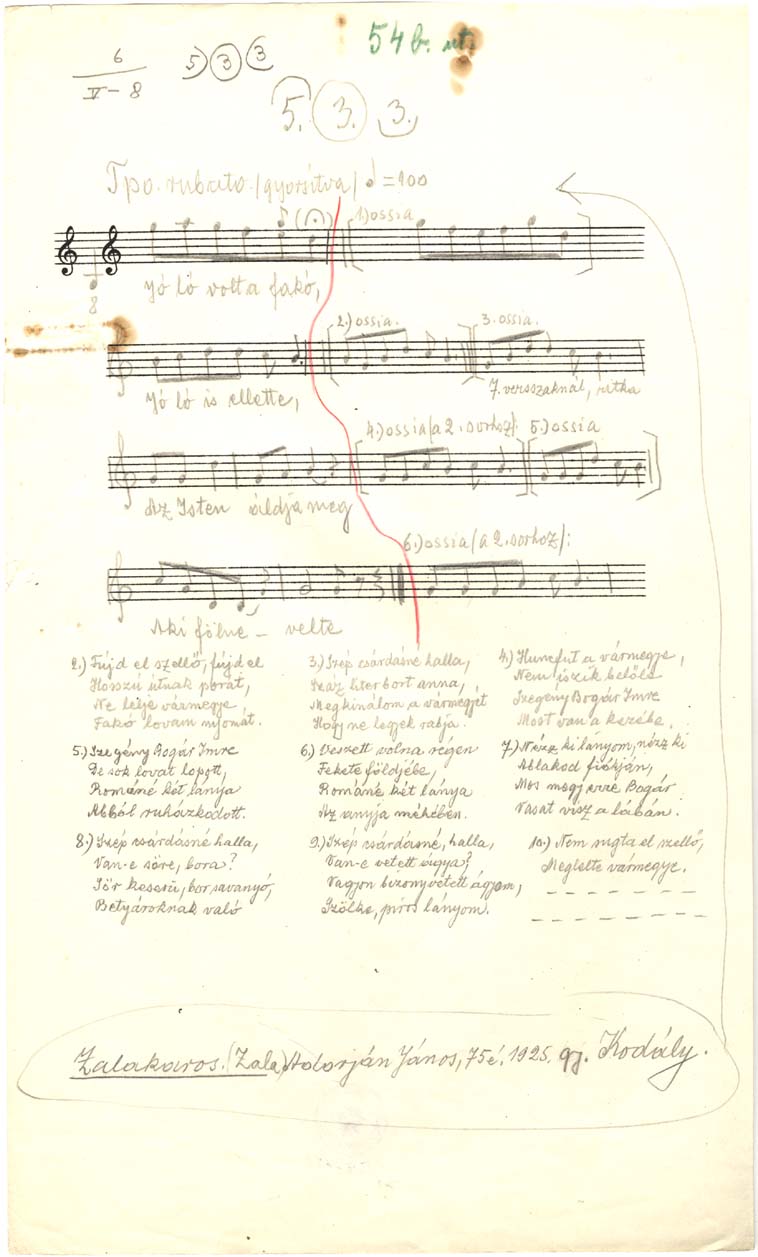 54 b. ut.
6
V-8
5 3 3
5. 3. 3.
Tpo. rubato (gyorsítva) =100
1.) ossia
8
Jó ló volt a fakó,
2.) ossia. 3. ossia.
Jó ló is ellette, 7. versszaknál, ritka
4.) ossia (a 2. sorhoz): 5.) ossia
Az Isten áldja meg
6.) ossia (a 2. sorhoz):
Aki fölne - velte
2.) Fújd el szellő, fújd el
Hosszú útnak porát,
Ne lelje vármegye
Fakó lovam nyomát.
3.) Szép csárdásné halla,
Száz liter bort anna,
Megkinálom a vármegyét
Hogy ne legyek rabja.
4.) Huncfut a vármegye,
Nem iszik belőle
Szegény Bogár Imre
Most van a kezébe.
5.) Szegény Bogár Imre
De sok lovat lopott,
Románé két lánya
Abból ruházkodott.
6.) Veszett volna régen
Fekete földjébe,
Románé két lánya
Az anyja méhében.
7.) Nézz ki lányom, nézz ki
Ablakod fiókján,
Mos megy erre Bogár
Vasat visz a lábán.
8.) Szép csárdásné halla,
Van-e söre, bora?
Sör keserü, bor savanyó,
Betyároknak való
9.) Szép csárdásné, halla,
Van-e vetett ágya?
Vagyon bizony vetett ágyam,
Szőlke, piros lányom.
10.) Nem fugta el szellő,
Meglelte vármegye.
Zalakaros. (Zala) Adorján János, 75 é. 1925. gy. Kodály.